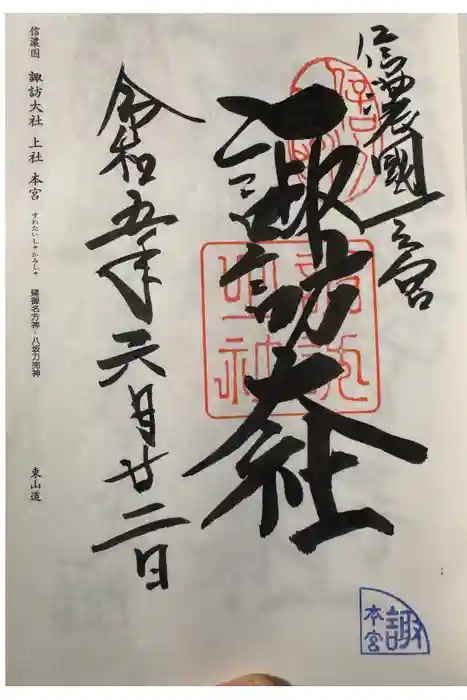 信濃國一之宮
諏訪大社
令和五年六月廿二日
信濃国 諏訪大社 上社 本宮 すわたいしゃかみしゃ 建御名方神・八坂刀売神 東山道
諏
本宮